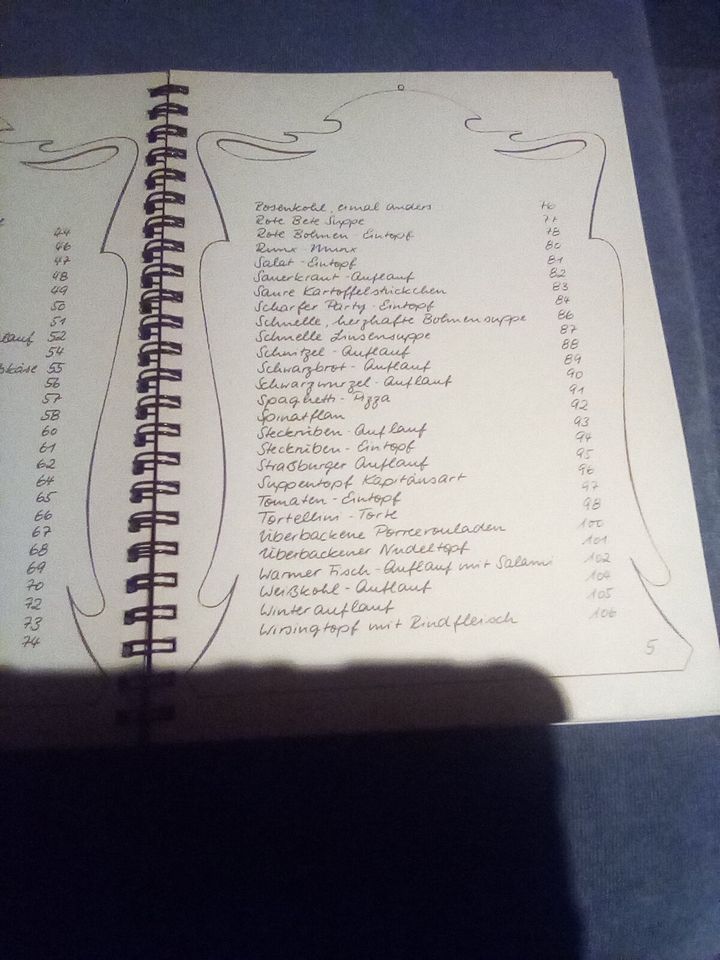 44
46
47
48
49
50
51
lauf 52
54
käse 55
56
57
58
60
61
62
64
65
66
67
68
69
70
72
73
74
Rosenkohl, einmal anders 76
Rote Bete Suppe 77
Rote Bohnen-Eintopf 78
80
Salat-Eintopf 81
Sauerkraut-Auflauf 82
Saure Kartoffelstückchen 83
Scharfer Party-Eintopf 84
Schnelle, herzhafte Bohnensuppe 86
Schnelle Linsensuppe 87
Schnitzel-Auflauf 88
Schwarzbrot-Auflauf 89
Schwarzwurzel-Auflauf 90
Spaghetti-Pizza 91
Spinatflan 92
Steckrüben-Auflauf 93
Steckrüben-Eintopf 94
Straßburger Auflauf 95
Suppentopf Kapitänsart 96
Tomaten-Eintopf 97
Tortellini-Torte 98
Überbackene Porreerouladen 100
Überbackener Nudeltopf 101
Warmer Fisch-Auflauf mit Salami 102
Weißkohl-Auflauf 104
Winterauflauf 105
Wirsingtopf mit Rindfleisch 106
5